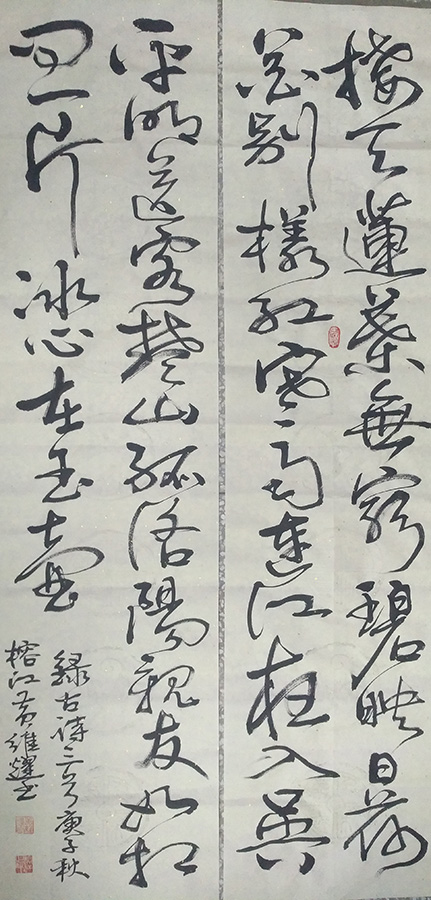 接天蓮葉無窮碧映日荷
花別樣紅寒雨連江夜入吳
平明送客楚山孤洛陽親友如相
問一片冰心在玉壺
錄古詩二首庚子秋
榕江黄維耀书